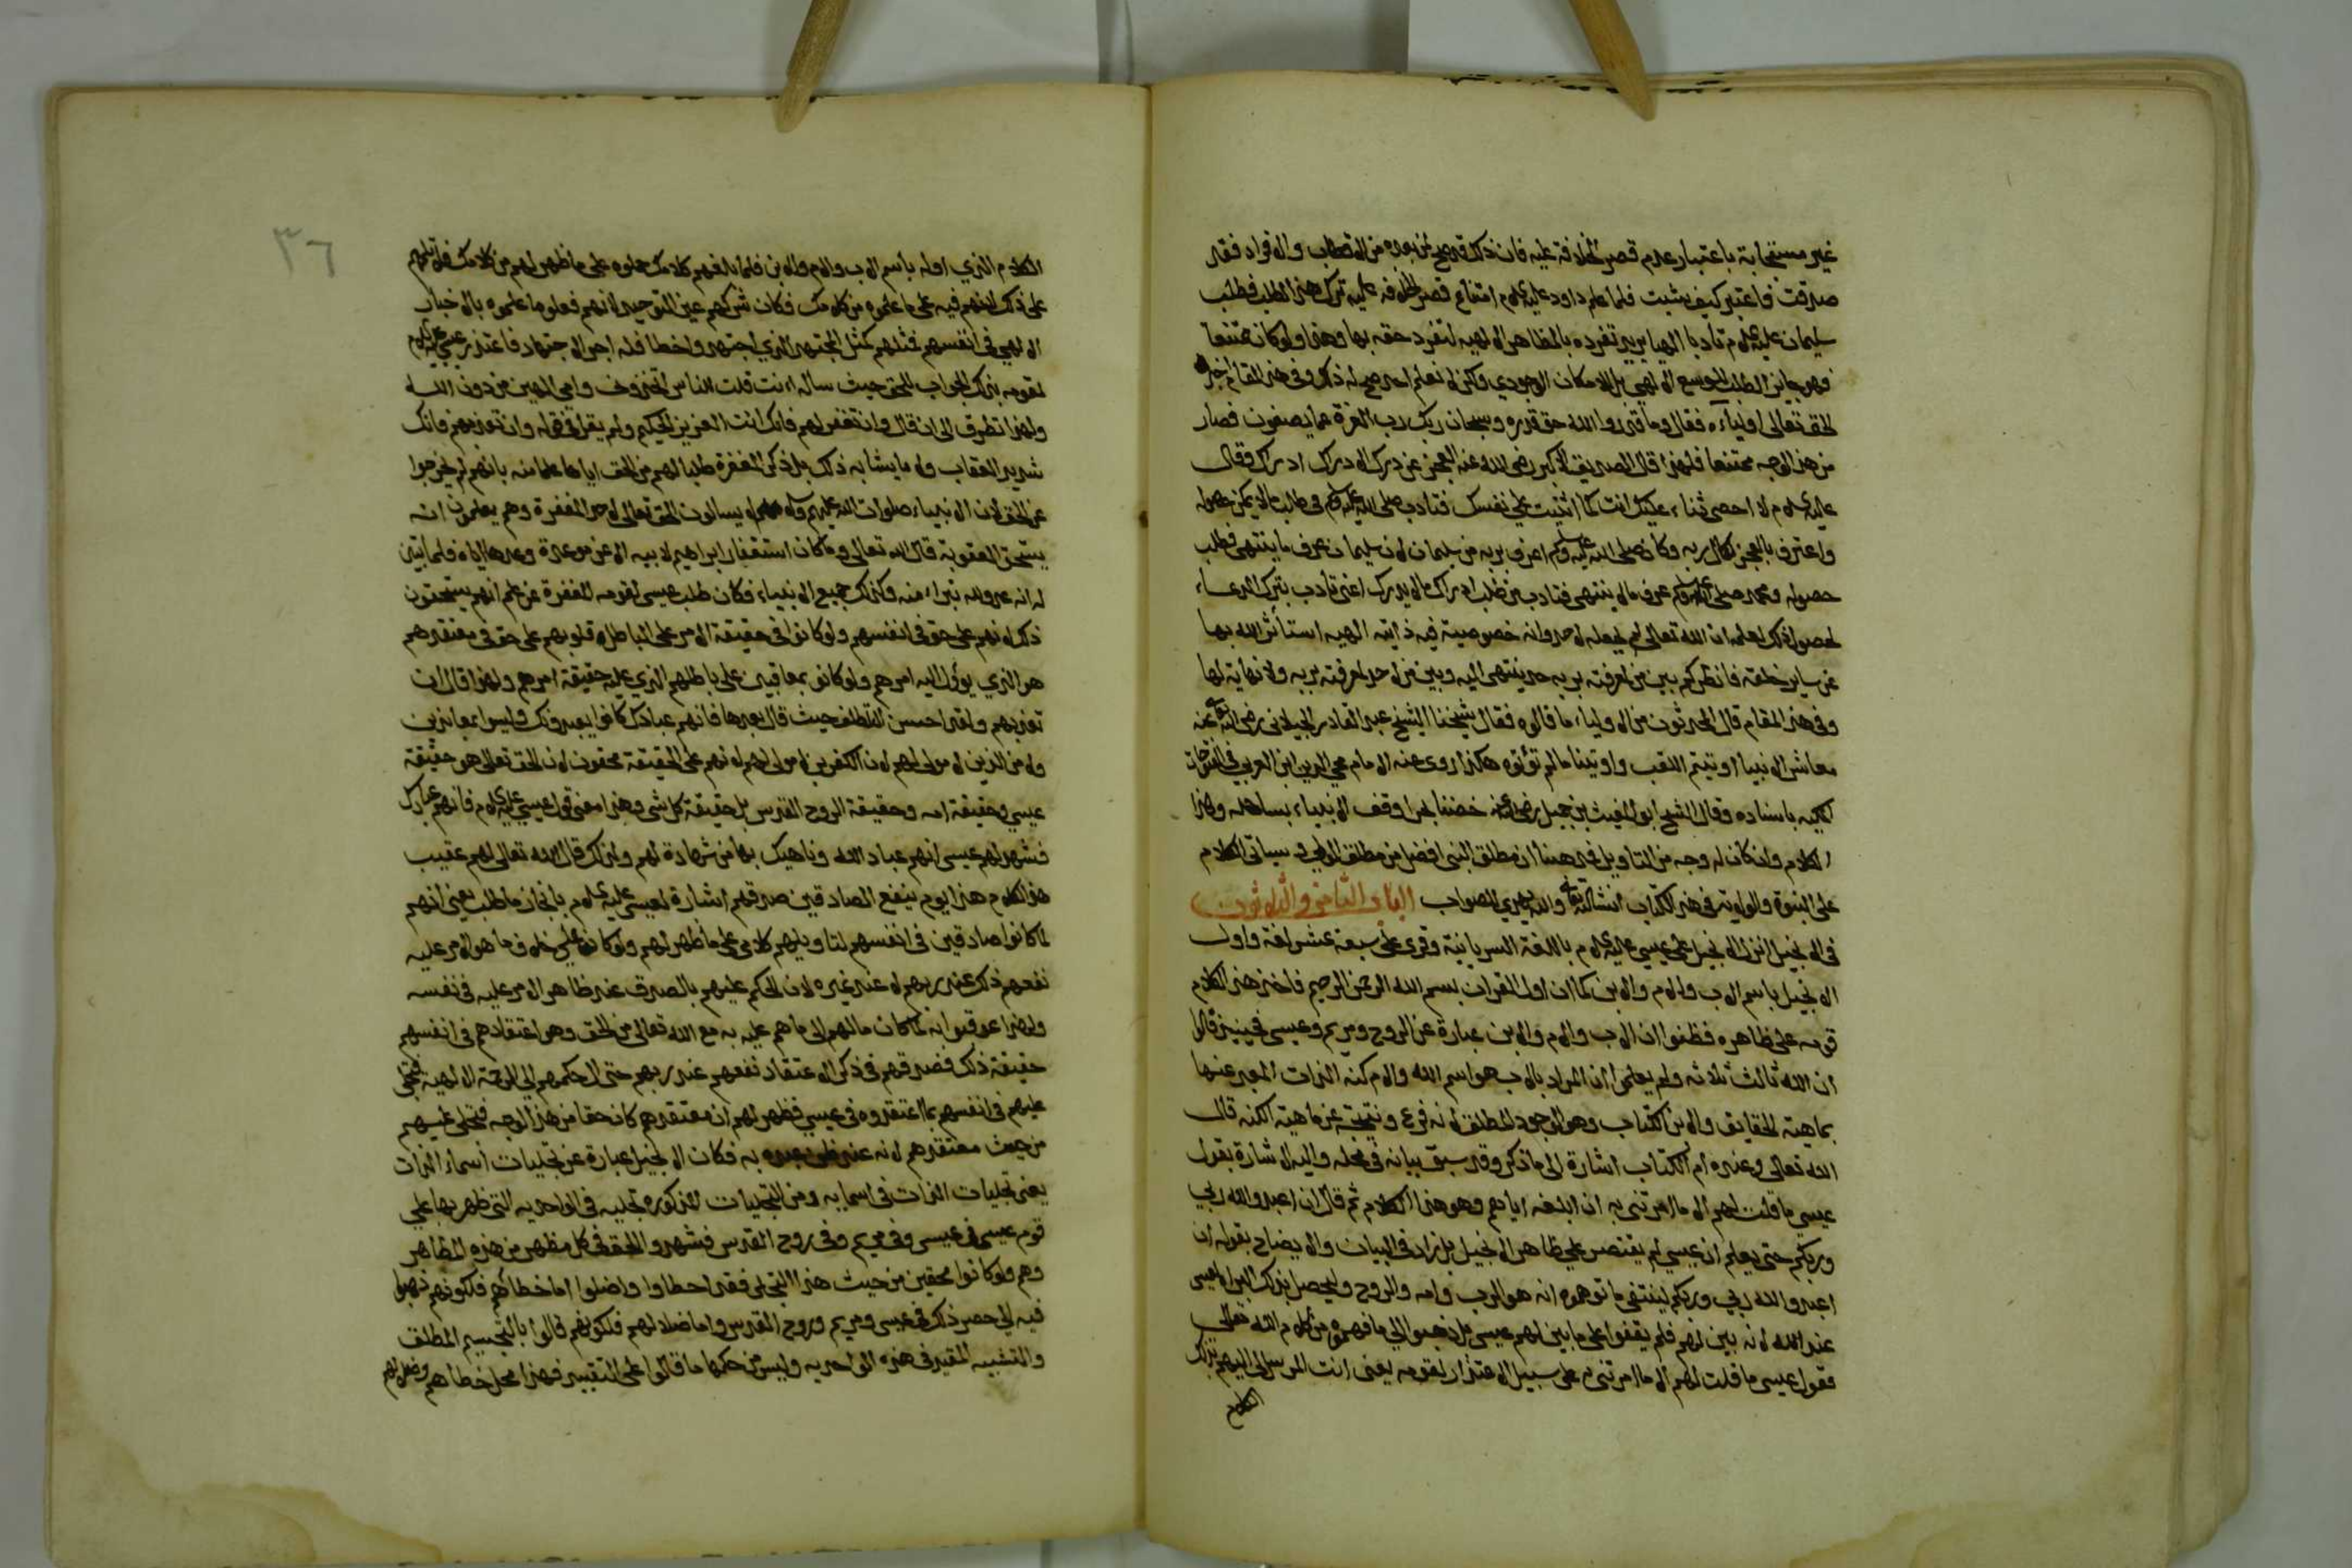 غير مستحابة باعتبار عدم قصر الخلافة عليه فان ذلك قد صح لمن بعده من الاقطاب والافراد فقد
صدقت فاعتبر كيف شئت فلما علم داود عليه السلام امتناع قصر الخلافه عليه ترك هذا الطلب فطلب
سليمان عليه السلام تادبا الهيا يريد تفرده بالمظاهر الالهيه لتفرد حقه بها وهذا ولو كان ممتنعا
فهو جايز الطلب لتوسع الالهي بل لامكان الوجودي ولكن لا نعلم احد صح له ذلك وفي هذا المقام اخبر
الحق تعالى اولياءه فقال وما قدروا الله حق قدره وسبحان ربك رب العزة عما يصفون فصار
من هذا الوجه ممتنعا فلهذا قال الصديق الاكبر رضي الله عنه العجز عن درك الادراك ادراك وقال
عليه السلام لا احصي ثناء عليك انت كما اثنيت على نفسك فتادب صلى الله عليه وسلم في طلب ما لا يمكن حصوله
واعترف بالعجز لكمال ربه وكان صلى الله عليه وسلم اعرف بربه من سليمان لان سليمان عرف ما ينتهي فطلب
حصوله ومحمد صلى الله عليه وسلم عرف ما لا ينتهي فتادب من طلب ادراك ما لا يدرك اعني تادب بترك الدعاء
لحصول ذلك لعلمه ان الله تعالى لم يجعله لاحد وانه خصوصية فيه ذاتيه الهيه استأثر الله بها
عن ساير خلقه فانظر كم بين من لمعرفته بربه حد ينتهي اليه وبين من لا حد لمعرفته بربه ولا نهاية لها
وفي هذا المقام قال المحمديون من الاولياء ما قالوه فقال شيخنا الشيخ عبد القادر الجيلاني رضي الله عنه
معاشر الانبيا اوتيتم اللقب واوتينا ما لم تؤتوه هكذا روى عنه الامام محي الدين ابن العربي في الفتوحات
المكيه باسناده وقال الشيخ ابو الغيث بن جميل رضي عنه خضنا بحرا وقف الانبياء بساحله وهذا
الكلام وان كان له وجه من التاويل فمذهبنا ان مطلق النبي افضل من مطلق الولي وسياتي الكلام
على النبوة والولاية في هذا الكتاب انشا الله تعالى والله يهدي للصواب الباب الثامن والثلاثون
في الانجيل انزل الانجيل على عيسى عليه السلام باللغة السريانية وقرى على سبعة عشر لغة واول
الانجيل باسم الاب والام والابن كما ان اول القران بسم الله الرحمن الرحيم فاخذ هذا الكلام
قومه على ظاهره فظنوا ان الاب والام والابن عبارة عن الروح ومريم وعيسى فحينيذ قالوا
ان الله ثالث ثلاثه ولم يعلموا ان المراد بالاب هو اسم الله والام كنه الذات المعبر عنها
بماهية الحقايق والابن الكتاب وهو الوجود المطلق لانه فرع ونتيجة عن ماهية الكنه قال
الله تعالى وعنده ام الكتاب اشارة الى ما ذكر وقد سبق بيانه في محله واليه الاشارة بقول
عيسى ما قلت لهم الا ما امرتني به ان ابلغه اياهم وهو هذا الكلام ثم قال ان اعبدوا الله ربي
وربكم حتى يعلم ان عيسى لم يقتصر على ظاهر الانجيل بل زاد في البيان والايضاح بقوله ان
اعبدوا الله ربي وربكم لينتفي ما توهموه انه هو الرب وامه والروح وليحصل بذلك البراة لعيسى
عند الله لانه بين لهم فلم يقفوا على ما بين لهم عيسى بل ذهبوا الى ما فهموه من كلام الله تعالى
فقول عيسى ما قلت لهم الا ما امرتني به على سبيل الاعتذار لقومه يعني انت المرسل الي اليهم بذلك
الكلام
٣٦
الكلام الذي اوله باسم الاب والام والابن فلما بلغهم كلامك حملوه على ما ظهر لهم من كلامك فلا تلمهم
على ذلك لانهم فيه على ما علموه من كلامك فكان شركهم عين التوحيد لانهم فعلوا ما علموه بالاخبار
الالهي في انفسهم فمثلهم كمثل المجتهد الذي اجتهد واخطا فله اجر الاجتهاد فاعتذر عيسى عليه السلام
لقومه بذلك الجواب للحق حيث ساله اءنت قلت للناس اتخذوني وامي الهين من دون الله
ولهذا تطرق الى ان قال وان تغفر لهم فانك انت العزيز الحكيم ولم يقل في قوله وان تعذبهم فانك
شديد العقاب ولا ما يشابه ذلك بل ذكر المغفرة طلبا لهم من الحق اياها علما منه بانهم لم يخرجوا
عن الحق لان الانبياء صلوات الله عليهم وسلامه لا يسالون الحق تعالى لاحد المغفرة وهم يعلمون انه
يستحق العقوبة قال الله تعالى وما كان استغفار ابراهيم لابيه الا عن موعدة وعدها اياه فلما تبين
له انه عدو لله تبراء منه وكذلك جميع الانبياء فكان طلب عيسى لقومه المغفرة عن علم انهم يستحقون
ذلك لانهم على حق في انفسهم ولو كانوا في حقيقة الامر على الباطل لان قلوبهم على حق في معتقدهم
هو الذي يؤول اليه امرهم ولو كانوا معاقبين على باطلهم الذي عليه حقيقة امرهم ولهذا قال ان
تعذبهم ولقد احسن التلطف حيث قال بعدها فانهم عبادك كانوا يعبدونك وليسوا بمعاندين
ولا من الذين لا مولى لهم لان الكفرين لا مولى لهم لانهم على الحقيقة محقون لان الحق تعالى هو حقيقة
عيسى وحقيقة امه وحقيقة الروح القدس بل حقيقة كل شي وهذا معنى قول عيسى عليه السلام فانهم عبادك
فشهد لهم عيسى انهم عباد الله وناهيك بها من شهادة لهم ولذلك قال الله تعالى لهم عقيب
هذا الكلام هذا يوم ينفع الصادقين صدقهم اشارة لعيسى عليه السلام بانجاز ما طلب يعني انهم
لما كانوا صادقين في انفسهم لتاويلهم كلامي على ما ظهر لهم ولو كانوا على خلاف ما هو الامر عليه
نفعهم ذلك عند ربهم لا عند غيره لان الحكم عليهم بالصرف عند ظاهر الامر عليه في نفسه
ولهذا عوقبوا به لما كان مالهم الى ما هم عليه به مع الله تعالى من الحق وهو اعتقادهم في انفسهم
حقيقة ذلك فصدقهم في ذكر الاعتقاد نفعهم عند ربهم حتى ال حكمهم الى الرحمة الالهية فتجلى
عليهم في انفسهم بما اعتقدوه في عيسى فظهر لهم ان معتقدهم كان حقا من هذا الوجه فتجلى عليهم
من حيث معتقدهم لانه عند ظن عبده به فكان الانجيل عبارة عن تجليات اسماء الذات
يعني تجليات الذات في اسمايه ومن التجليات المذكوره تجليه في الواحديه التي ظهر بها على
قوم عيسى في عيسى وفي مريم وفي روح القدس فشهدوا الحق في كل مظهر من هذه المظاهر
وهم ولو كانوا محقين من حيث هذا التجلي فقد اخطاوا واضلوا اما خطاؤهم فلكونهم ذهبوا
فيه الى حصر ذلك في عيسى ومريم وروح القدس واما ضلالهم فلكونهم قالوا بالتجسيم المطلق
والتشبيه المقيد في هذه الواحديه وليس من حكمها ما قالوا على التقييد فهذا محل خطاهم وضلالهم